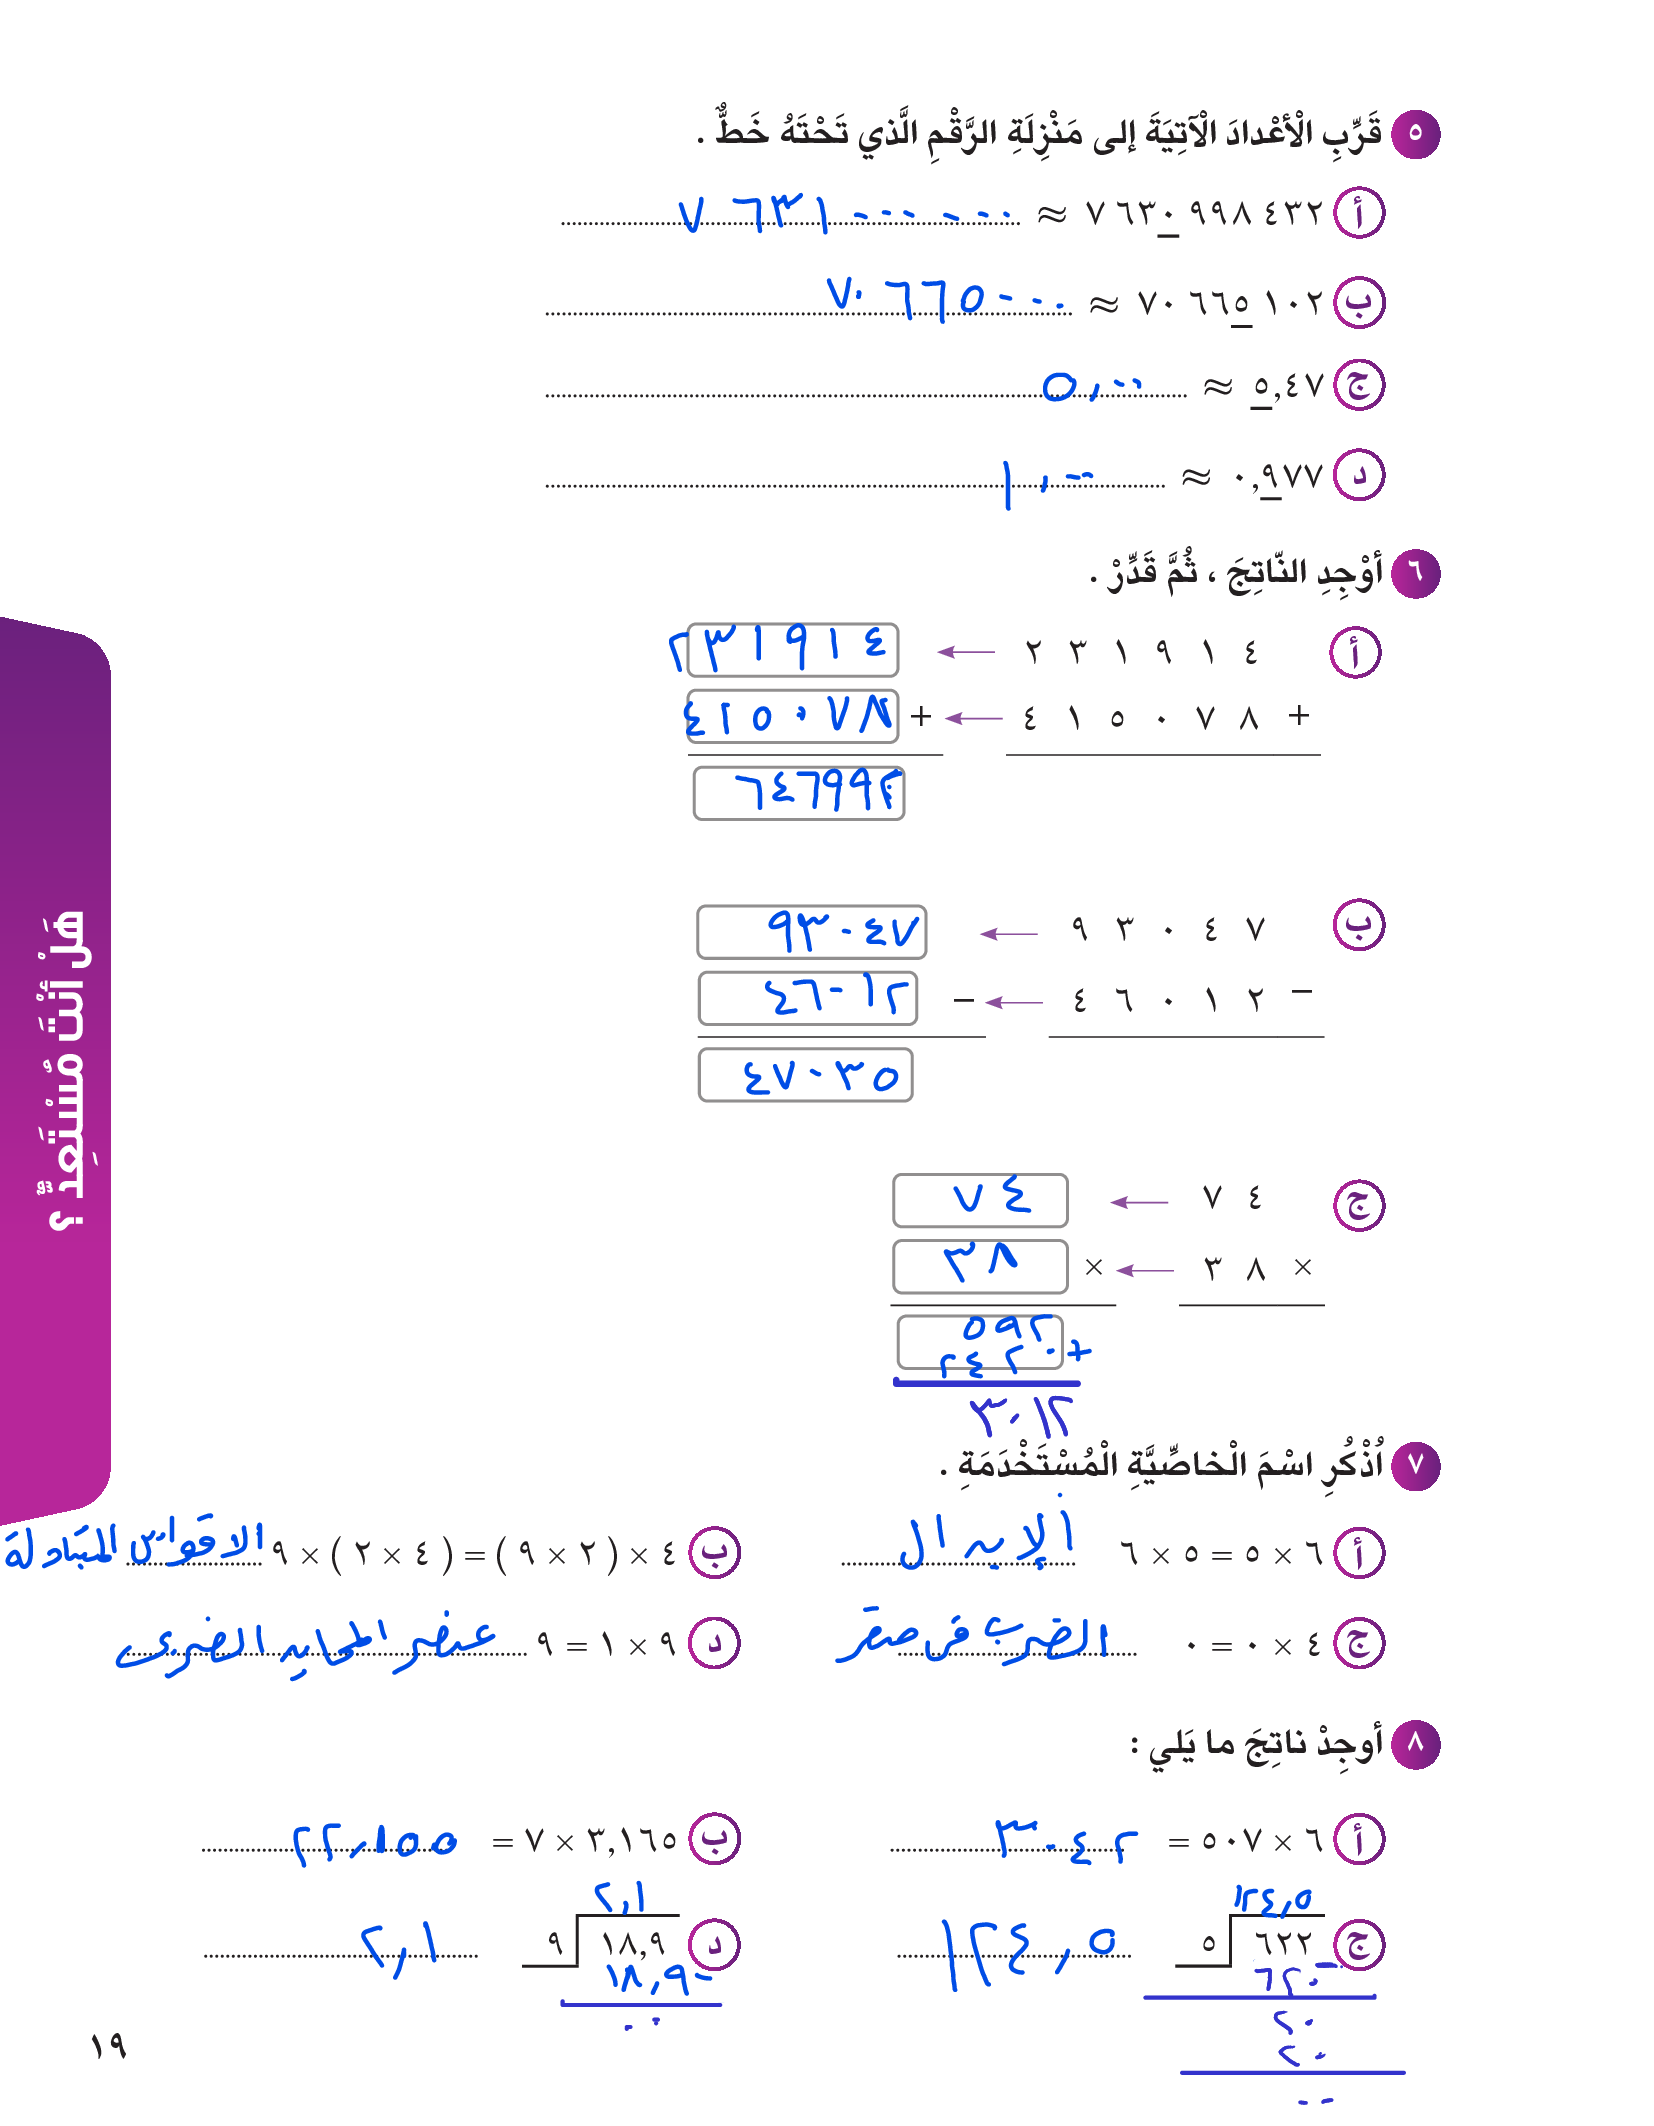 ٥ قَرِّبِ الْأَعْدادَ الْآتِيَةَ إلى مَنْزِلَةِ الرَّقْمِ الَّذي تَحْتَهُ خَطٌّ .
أ ٧ ٦٣٠ ٩٩٨ ٤٣٢ ≈ ٧ ٦٣١ ٠٠٠ ٠٠٠
ب ٧٠ ٦٦٥ ١٠٢ ≈ ٧٠ ٦٦٥ ٠٠٠
ج ٥,٤٧ ≈ ٥,٠٠
د ٠,٩٧٧ ≈ ١,٠٠
٦ أَوْجِدِ النّاتِجَ ، ثُمَّ قَدِّرْ .
أ ٢ ٣ ١ ٩ ١ ٤ ← ٢٣١٩١٤
+ ٤ ١ ٥ ٠ ٧ ٨ ← + ٤١٥٠٧٨
٦٤٦٩٩٢
ب ٩ ٣ ٠ ٤ ٧ ← ٩٣٠٤٧
− ٤ ٦ ٠ ١ ٢ ← − ٤٦٠١٢
٤٧٠٣٥
ج ٧ ٤ ← ٧٤
× ٣ ٨ ← × ٣٨
٥٩٢
٢٤٢٠ +
٣٠١٢
٧ اُذْكُرِ اسْمَ الْخاصِّيَّةِ الْمُسْتَخْدَمَةِ .
أ ٦ × ٥ = ٥ × ٦ الإبدال
ب ٤ × ( ٢ × ٩ ) = ( ٤ × ٢ ) × ٩ الاقواس المتبادلة
ج ٤ × ٠ = ٠ الضرب في صفر
د ٩ × ١ = ٩ عنصر المحايد الضربي
٨ أوجِدْ ناتِجَ ما يَلي :
أ ٦ × ٥٠٧ = ٣٠٤٢
ب ٣,١٦٥ × ٧ = ٢٢,١٥٥
ج ١٢٤,٥
٥ ٦٢٢ ١٢٤,٥
٦٢٠ −
٢٠
٢٠
٠٠
د ٢,١
٩ ١٨,٩ ٢,١
١٨,٩ −
٠٠
هَلْ أَنْتَ مُسْتَعِدٌّ ؟
١٩